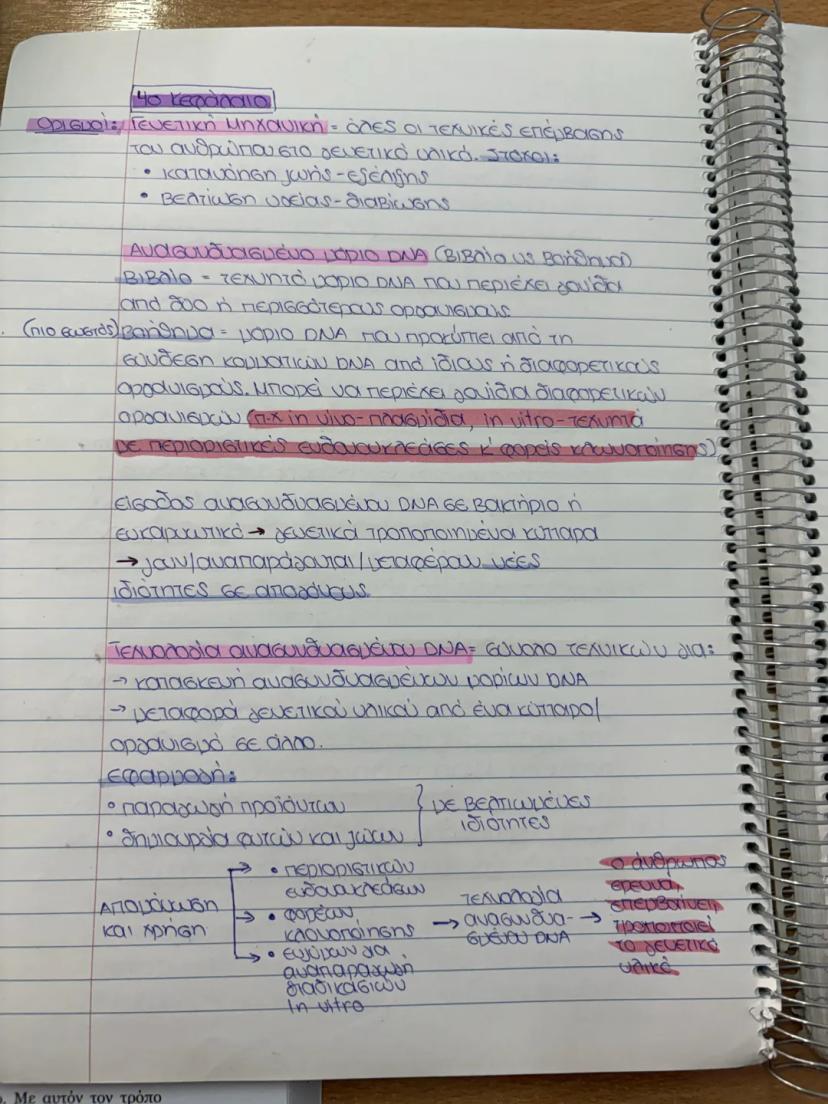 4ο Κεφάλαιο
Ορισμοί: Γενετική Μηχανική = όλες οι τεχνικές επέμβασης
του ανθρώπου στο γενετικό υλικό. Στόχοι:
• κατανόηση ζωής-εξέλιξης
• βελτίωση υγείας-διαβίωσης
Ανασυνδυασμένο μόριο DNA (Βιβλίο vs Βοήθημα)
Βιβλίο = τεχνητό μόριο DNA που περιέχει γονίδια
από δύο ή περισσότερους οργανισμούς
(πιο σωστός) Βοήθημα = μόριο DNA που προκύπτει από τη
σύνδεση κομματιών DNA από ίδιους ή διαφορετικούς
οργανισμούς. Μπορεί να περιέχει γονίδια διαφορετικών
οργανισμών (π.χ in vivo-πλασμίδια, in vitro-τεχνητά
με περιοριστικές ενδονουκλεάσες κ' φορείς κλωνοποίησης)
είσοδος ανασυνδυασμένου DNA σε βακτήριο ή
ευκαρυωτικό → γενετικά τροποποιημένα κύτταρα
→ ζουν/αναπαράγονται/μεταφέρουν νέες
ιδιότητες σε απογόνους
Τεχνολογία ανασυνδυασμένου DNA = σύνολο τεχνικών για:
→ κατασκευή ανασυνδυασμένων μορίων DNA
→ μεταφορά γενετικού υλικού από ένα κύτταρο/
οργανισμό σε άλλο.
Εφαρμογή:
• παραγωγή προϊόντων
• δημιουργία φυτών και ζώων } με βελτιωμένες
ιδιότητες
Απομόνωση
και χρήση
• περιοριστικών
ενδονουκλεασών
• φορέων
κλωνοποίησης
• ενζύμων για
αναπαραγωγή
διαδικασιών
in vitro
→ τεχνολογία
ανασυνδυα-
σμένου DNA
→ ο άνθρωπος
ερευνά
επεμβαίνει
τροποποιεί
το γενετικό
υλικό
. Με αυτόν τον τρόπο